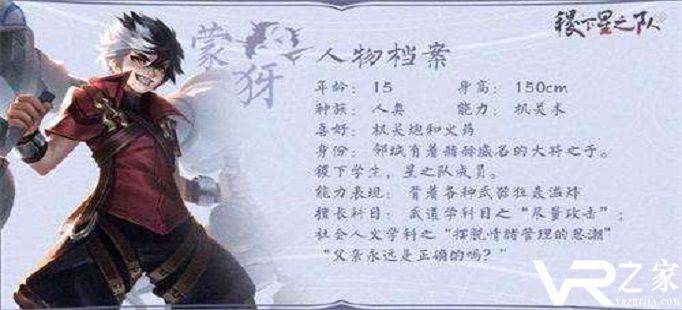 稷下星之队
蒙犽
人物档案
年龄：15 身高：150cm
种族：人类 能力：机关术
喜好：机关炮和火药
身份：邻城有着赫赫威名的大将之子。
稷下学生，星之队成员。
能力表现：背着各种武器狂轰滥炸
擅长科目：武道学科目之“尽量攻击”；
社会人文学科之“摆脱情绪管理的思潮”
“父亲永远是正确的吗？”
VR之家
VRZHIJIA.COM